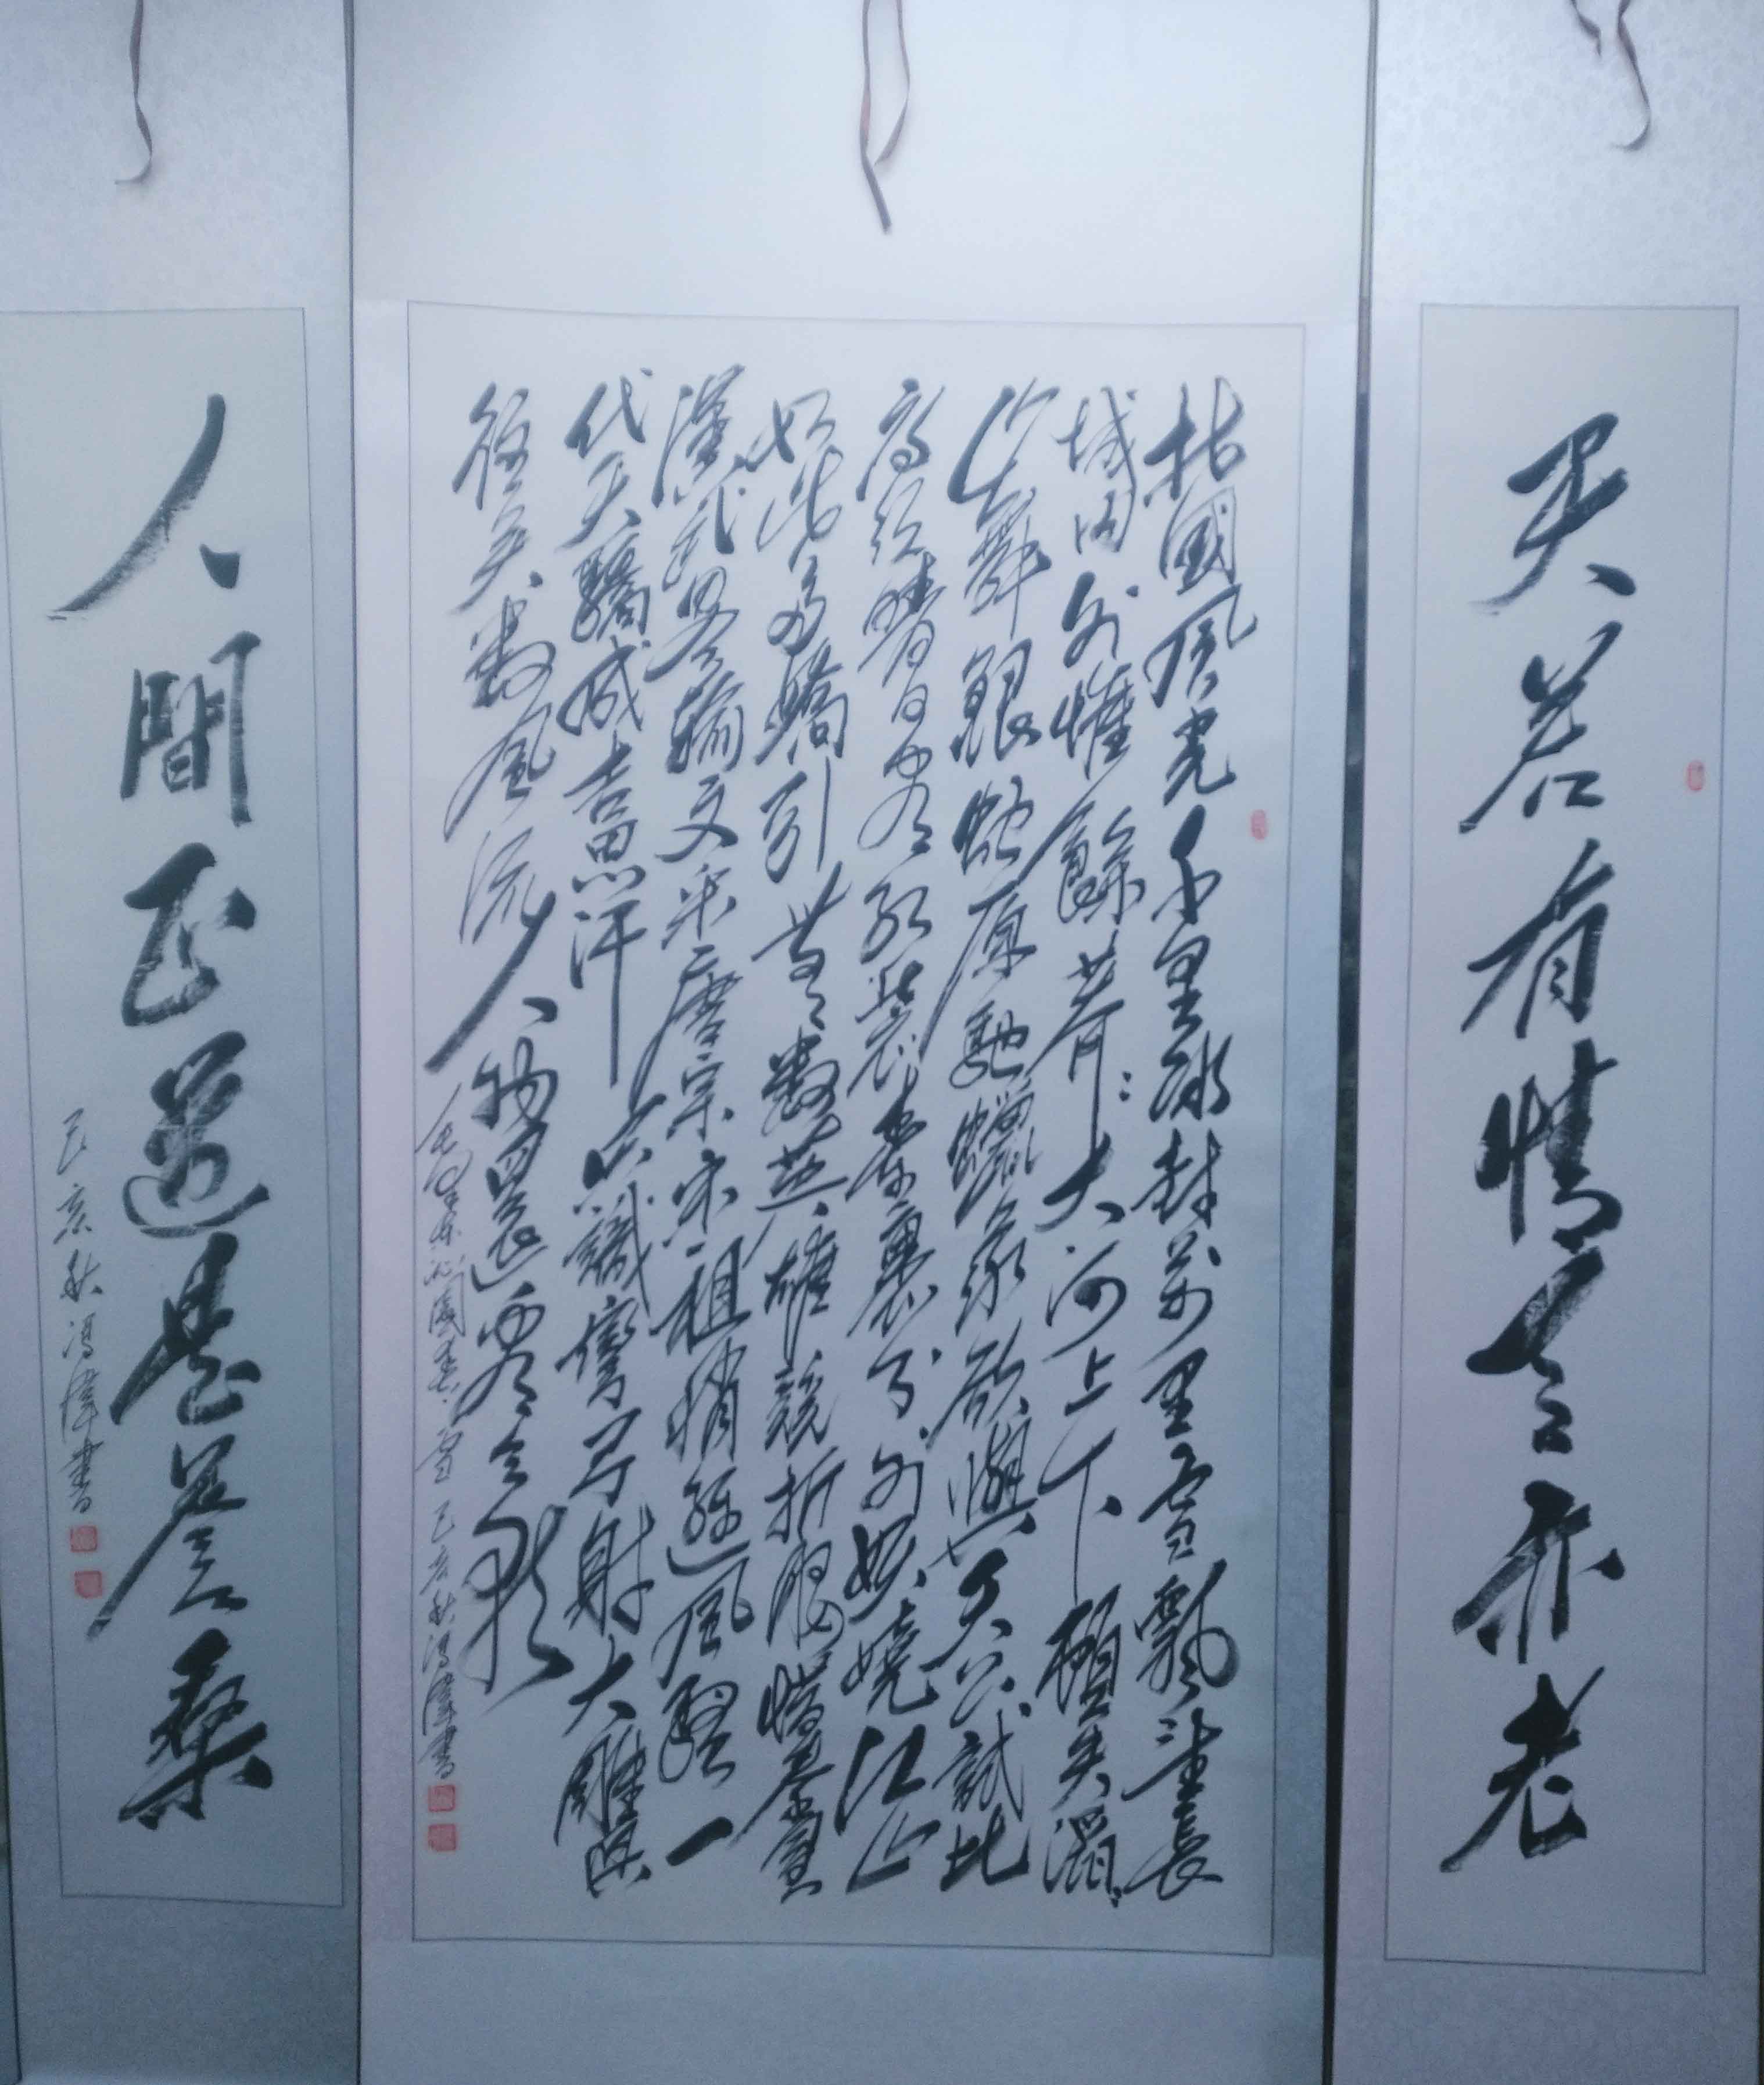 天若有情天亦老
北國風光千里冰封萬里雪飄望長
城内外惟餘莽々大河上下頓失滔々
山舞銀蛇原馳蠟象欲與天公試比
高須晴日看紅裝素裹分外妖嬈江山
如此多嬌引無數英雄競折腰惜秦皇
漢武略輸文采唐宗宋祖稍遜風騷一
代天驕成吉思汗只識彎弓射大雕俱
往矣數風流人物還看今朝
毛澤東沁園春雪 己亥秋馮偉書
人間正道是滄桑
己亥秋馮偉書